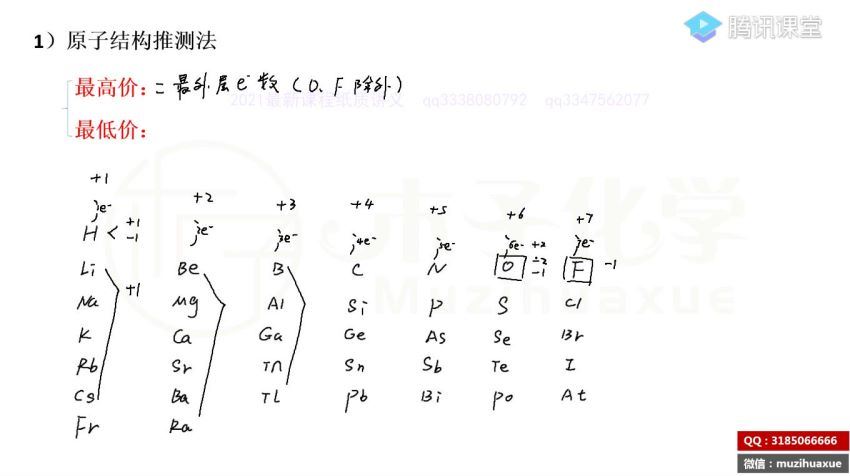 腾讯课堂
1）原子结构推测法
最高价：= 最外层e⁻数（O、F除外）
2021最新课程纸质讲义 qq3338080792 qq3347562077
最低价：
木子化学
Muzihuaxue
+1 +2 +3 +4 +5 +6 +7
1e⁻ 2e⁻ 3e⁻ 4e⁻ 5e⁻ 6e⁻ 7e⁻
H < +1 -1
Li Be B C N O +2 -2 -1 F -1
Na +1 Mg Al Si P S Cl
K Ca Ga Ge As Se Br
Rb Sr In Sn Sb Te I
Cs Ba Tl Pb Bi Po At
Fr Ra
QQ：3185066666
微信：muzihuaxue